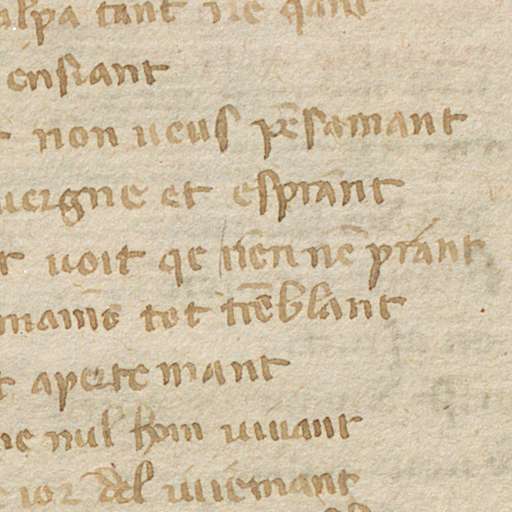 alpa tant ne qant
ensiant
non veus pēsamant
vergne et esprant
t voit qe nen nē prant
mains tot trēblant
t apertemant
ne nul hom vivant
ior del vivemant